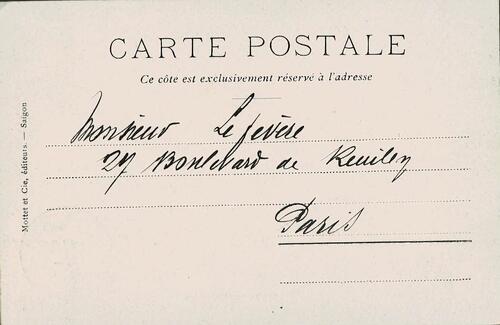 CARTE POSTALE
Ce côté est exclusivement réservé à l'adresse
Monsieur Lefévère
27 Boulevard de Reuilly
Paris
Mottet et Cie, éditeurs. — Saigon